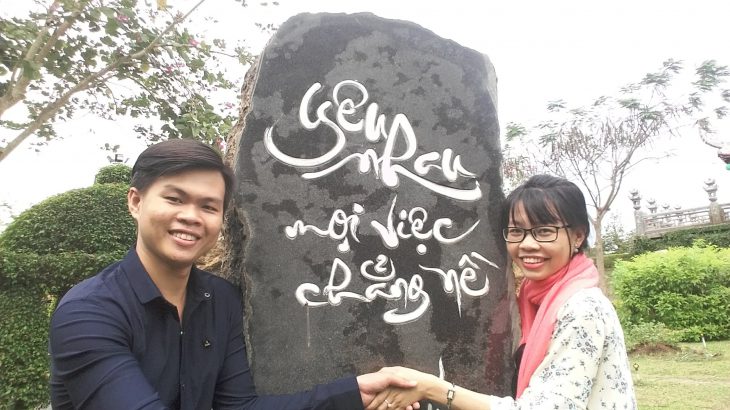 yêu
nhau
mọi việc
chẳng nề